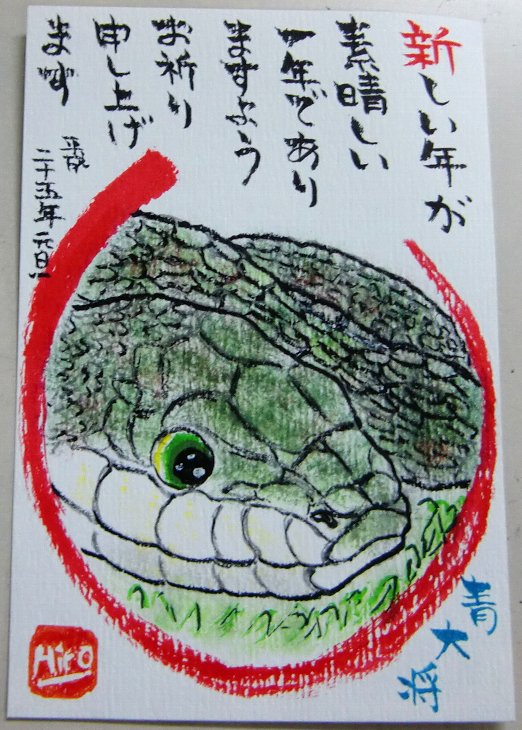 新しい年が
素晴しい
一年であり
ますよう
お祈り
申し上げ
ます
平成
二十五年 元旦
青大将
Hiro